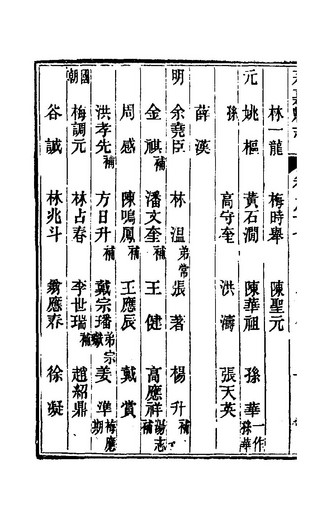 林一龍 梅時舉 陳聖元
元 姚樞 黃石澗 陳華祖 孫華一作孫華
孫 高守奎 洪濤 張天英
薛漢
明 余堯臣 林温弟常 張著 楊升補
金祺補 潘文奎補 王健 高應祥補
周感 陳鳴鳳補 王應辰 戴賞
洪孝先補 方日升補 戴宗璠弟宗 姜準梅應期
國朝 梅調元 林占春 李世瑞補 趙紹鼎
谷誠 林兆斗 翁應春 徐凝